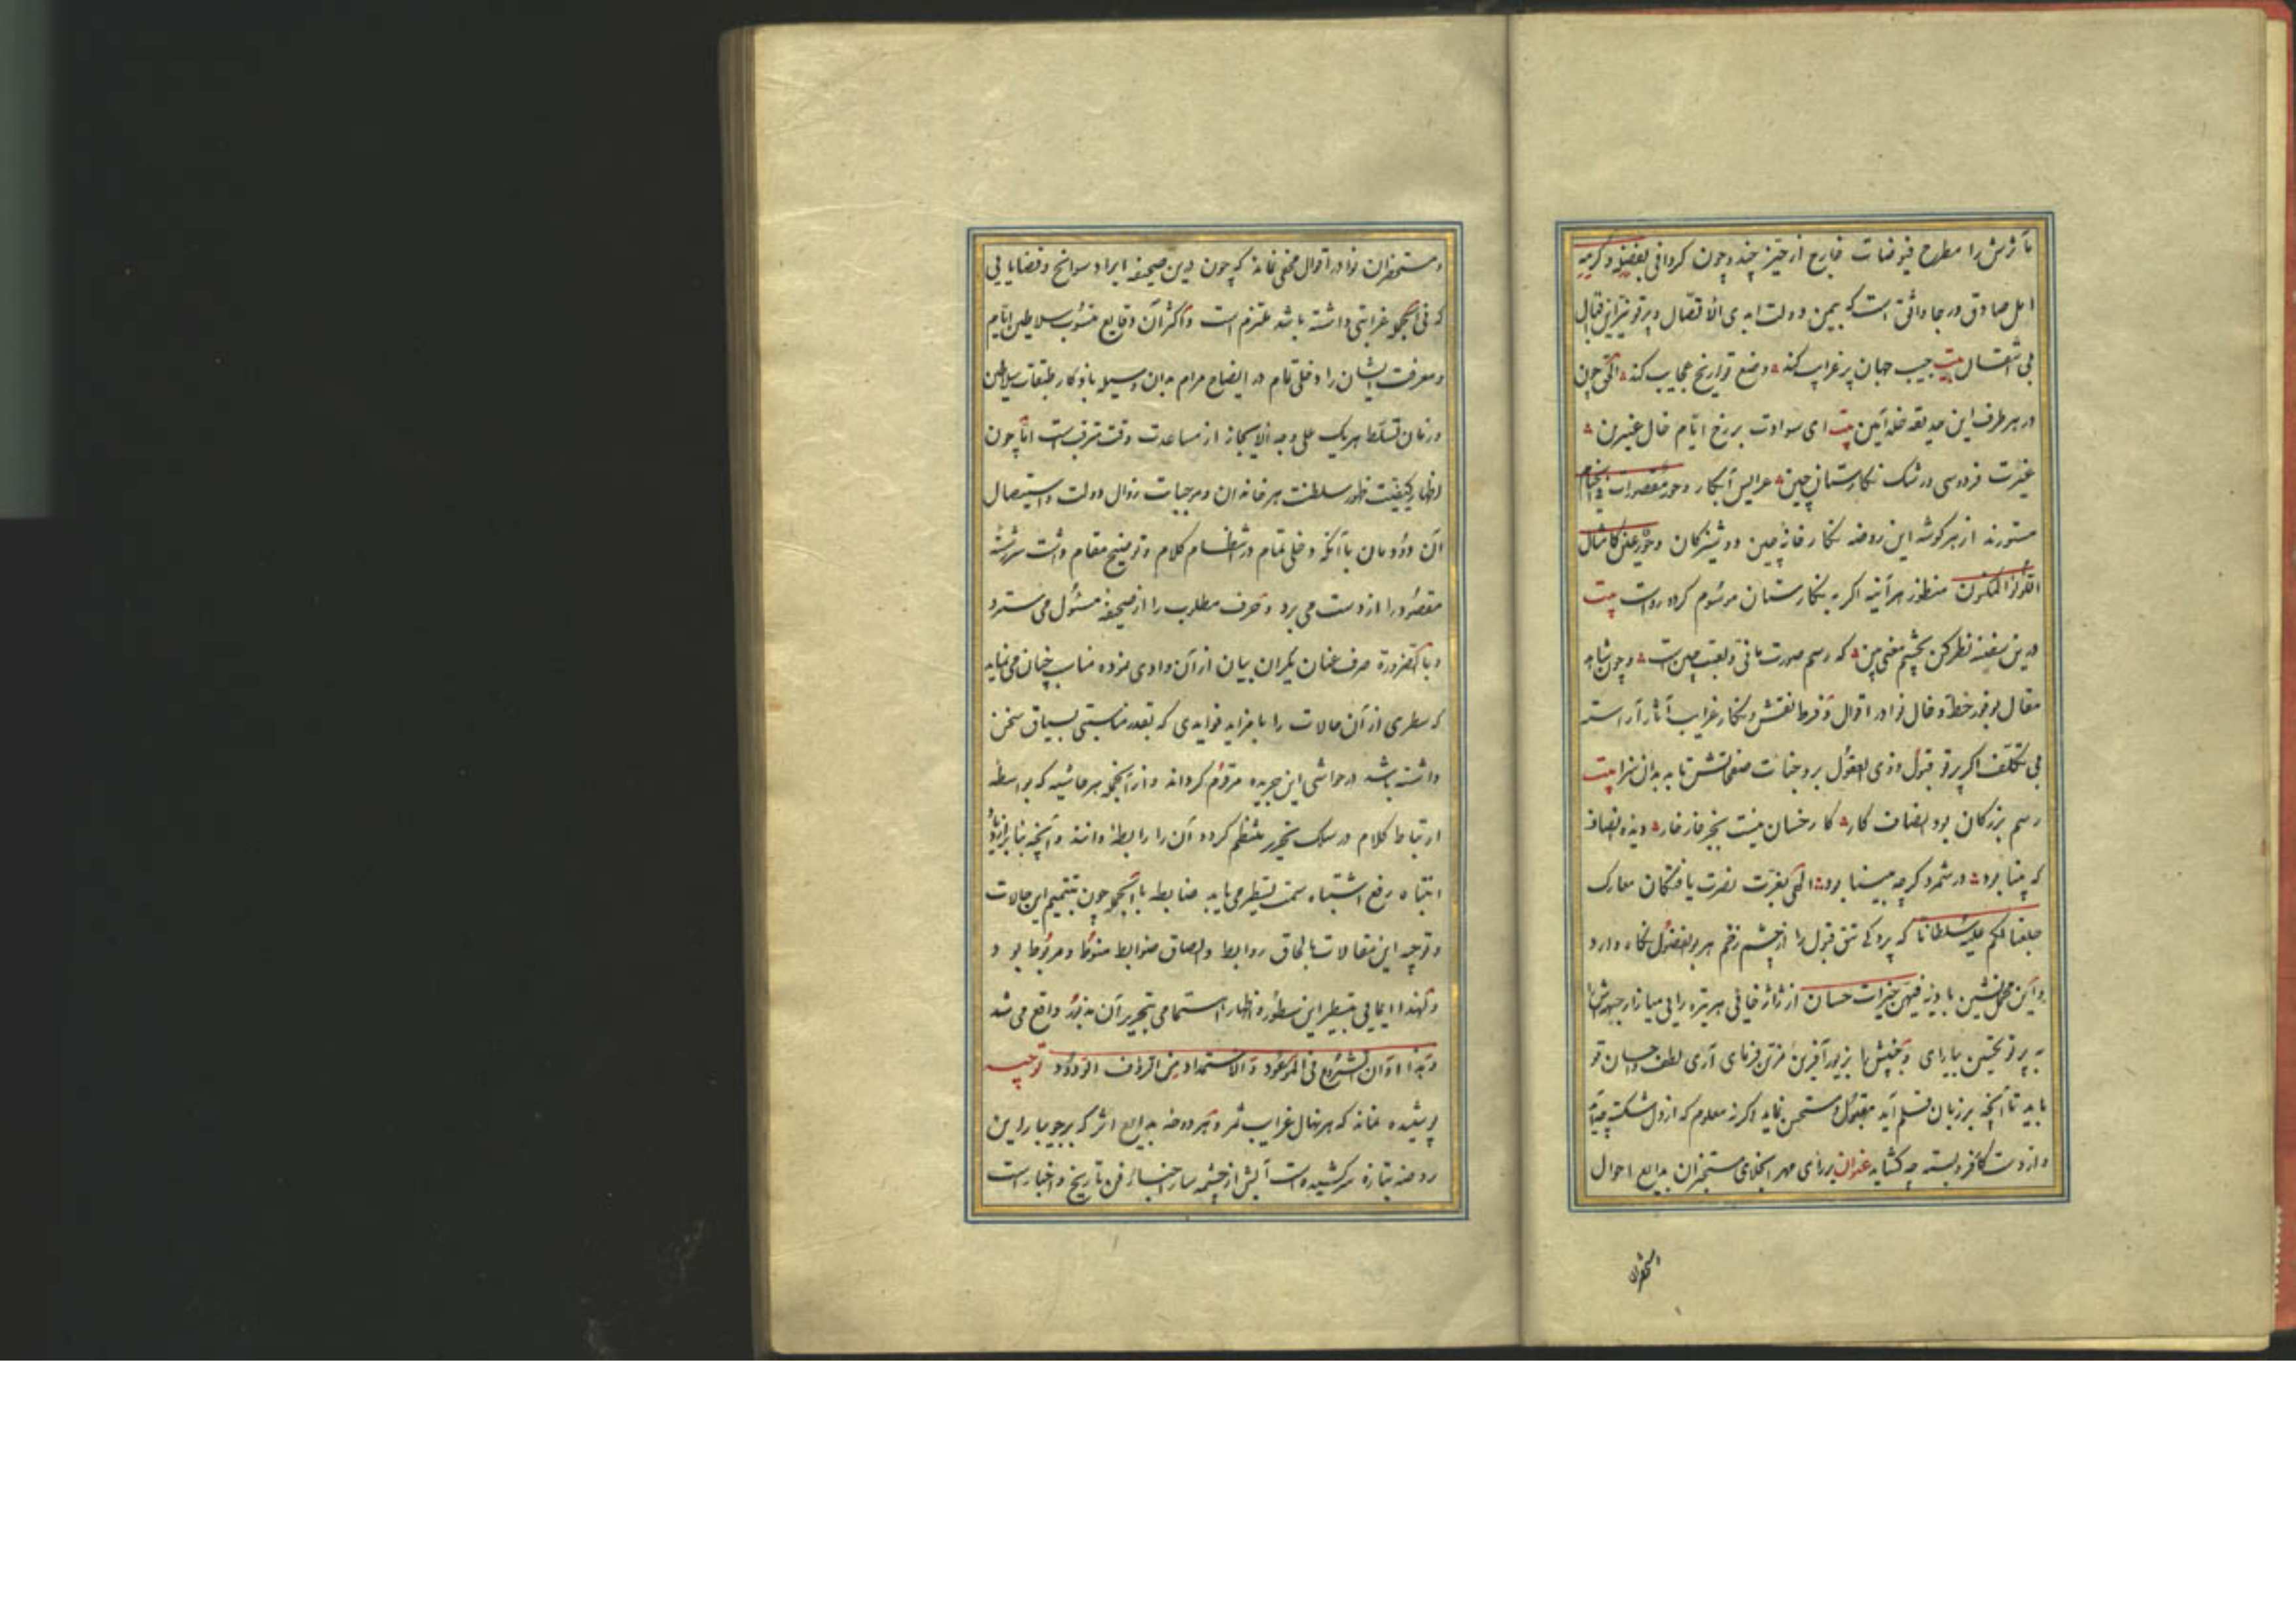 مآثرش را مطرح فیوضات خارج از حیز چند و چون گردانی بفضله و کرمه
امل صادق و رجا واثق است که بیمن دولت ابدی الاتصال و پرتو نیر این اقبال
بی انتقال بیت جیب جهان پر غرایب کند وضع تواریخ عجایب کند الحق چون
در هر طرف این حدیقه خلد آیین بیت ای سوادت بر رخ ایام خال عنبرین
غیرت فردوسی و رشک نگارستان چین عرایس ابکار و حور مقصورات فی الخیام
مستورند از هر گوشه این روضه نگار خانه چین دوشیزگان و حور عین کامثال
اللؤلؤ المکنون منظور هر آینه اگر به نگارستان موسوم گردد رواست بیت
درین سفینه نظر کن بچشم معنی بین که رسم صورت مانی و لعبت چین است و چون شاهد
مقال بوفور خط و خال نوادر اقوال و فرط نقش و نگار غرایب آثار آراسته
بی تکلف اگر پرتو قبول ذوی العقول بر وجنات صفحاتش تابد بدان سزا بیت
رسم بزرگان بود انصاف کار کار خسان نیست بجز خار خار دیده انصاف
که بینا بود در شمرد گرچه مینا بود الهی بعزت نصرت یافتگان معارک
جعلنا لکم علیه سلطانا که پردگی تتق قبول را از چشم زخم هر بوالفضول نگاه دارد
و این محمل نشین بادیه فیهن خیرات حسان از ژاژخایی هر یزه رایی میازار چهره‌اش را
به پرتو تحسین بیارای و جبینش را بزیور آفرین مزین فرمای آری لطف و احسان تو
باید تا آنچه بر زبان قلم آید مقبول و مستحسن نماید و گرنه معلوم که از دل شکسته چه آید
و از دست کار فروبسته چه گشاید عنوان بر رای مهر انجلای مستخبران بدایع احوال
و مستحضران
و مستحضران نوادر اقوال مخفی نماند که چون درین صحیفه ایراد سوانح و قضایایی
که فی الجمله غرابتی داشته باشد ملتزم است و اکثر آن وقایع منسوب بسلاطین ایام
و معرفت ایشان را دخلی تمام در ایضاح مرام بدان وسیله باذکار طبقات سلاطین
و زمان تسلط هریک علی وجه الایجاز از مساعدت وقت مترقب است اما چون
اظهار کیفیت ظهور سلطنت هر خاندان و موجبات زوال دولت و استیصال
آن دودمان با آنکه دخلی تمام در انتظام کلام و توضیح مقام داشت سررشته
مقصود را از دست می برد و حرف مطلوب را از صحیفه مسئول می سترد
و بالضرورة صرف عنان یکران بیان از آن وادی نموده مناسب چنان می نماید
که سطری از آن حالات را با مزاید فوایدی که بقدر مناسبتی بسیاق سخن
داشته باشد در حواشی این جریده مرقوم گرداند و از آنجمله هر حاشیه که بواسطه
ارتباط کلام در سلک تحریر منتظم گردد آن را رابطه دانند و آنچه بنابر ازدیاد
انتباه و رفع اشتباه سمت تسطیر می یابد ضابطه بالجمله چون تتمیم این حالات
و توجیه این مقالات بالحاق روابط و الصاق ضوابط منوط و مربوط بود
و لهذا ایمایی بتسطیر این سطور و اظهار اهتمامی بتحریر آن مذکور واقع می شد
و هذا اوان الشروع فی الموعود و الاستمداد من الرؤف الودود توجیه
پوشیده نماند که هر نهال غرایب ثمر و هر دوحه بدایع اثر که بر جویبار این
روضه بتازه سرکشیده است آبش از چشمه سار اخبار فن تاریخ و اخبار است